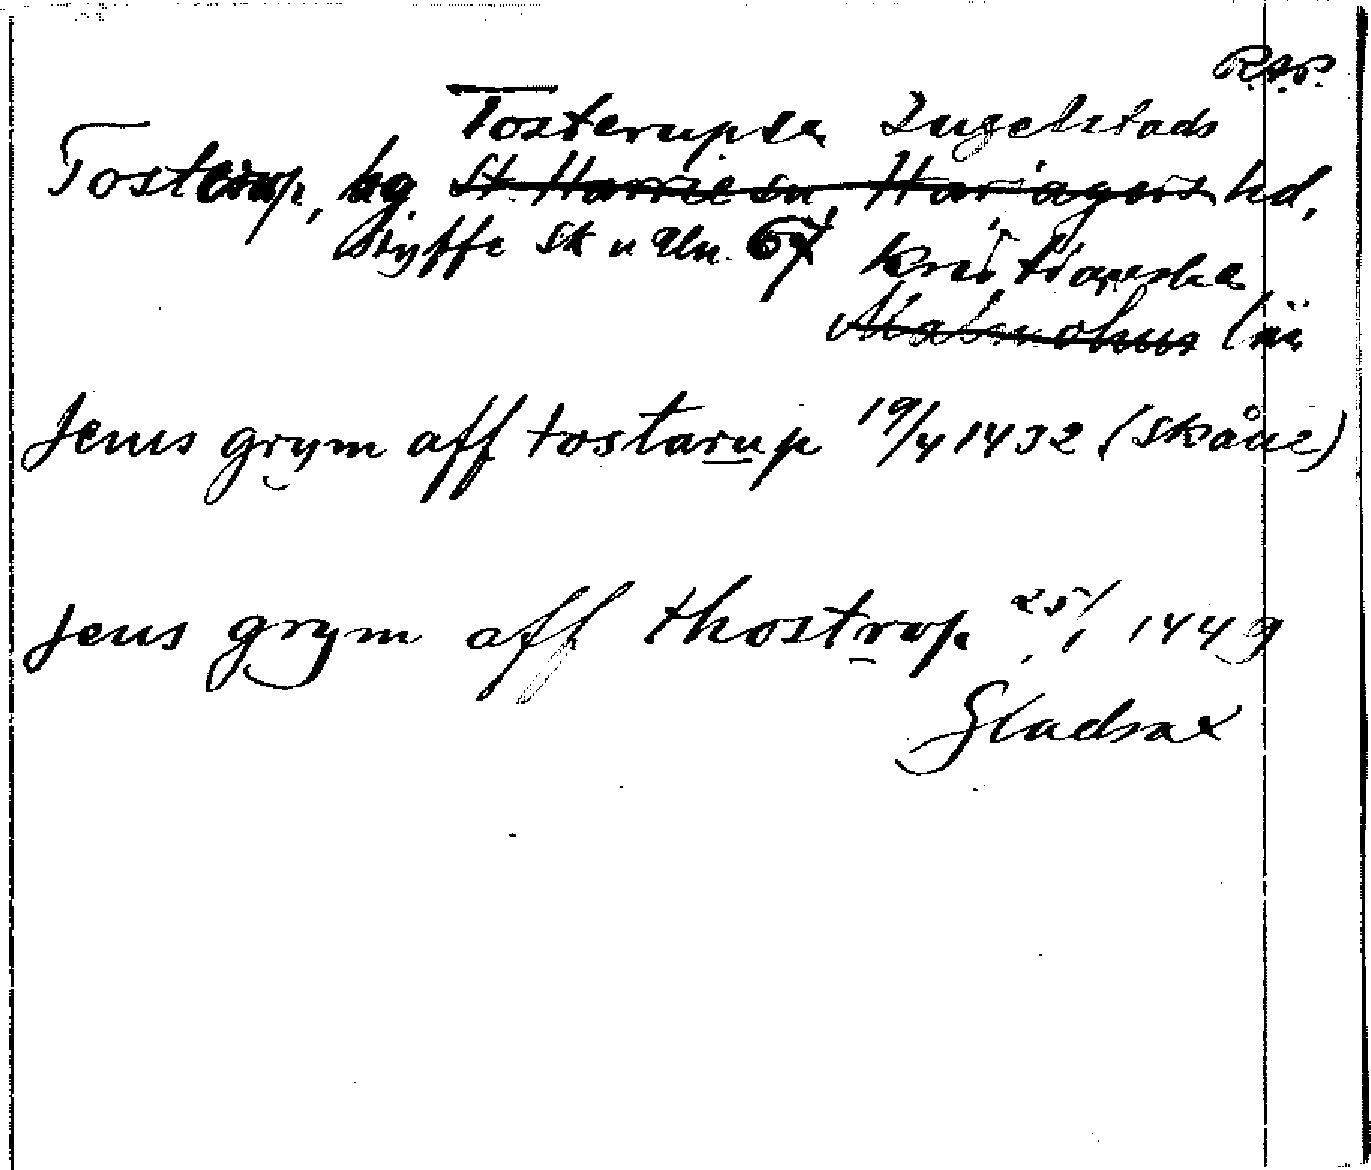 R.A.P.
Tosterups sn Ingelstads
Tosterup, hg St. Harrie sn, Harjagers hd,
Styffe Sk u Un. 67 Kristianstads
Malmöhus län
Jenus grym aff tostarup 19/4 1432 (Skåne)
Jens grym aff thostrop 25/1 1449
Gladsax